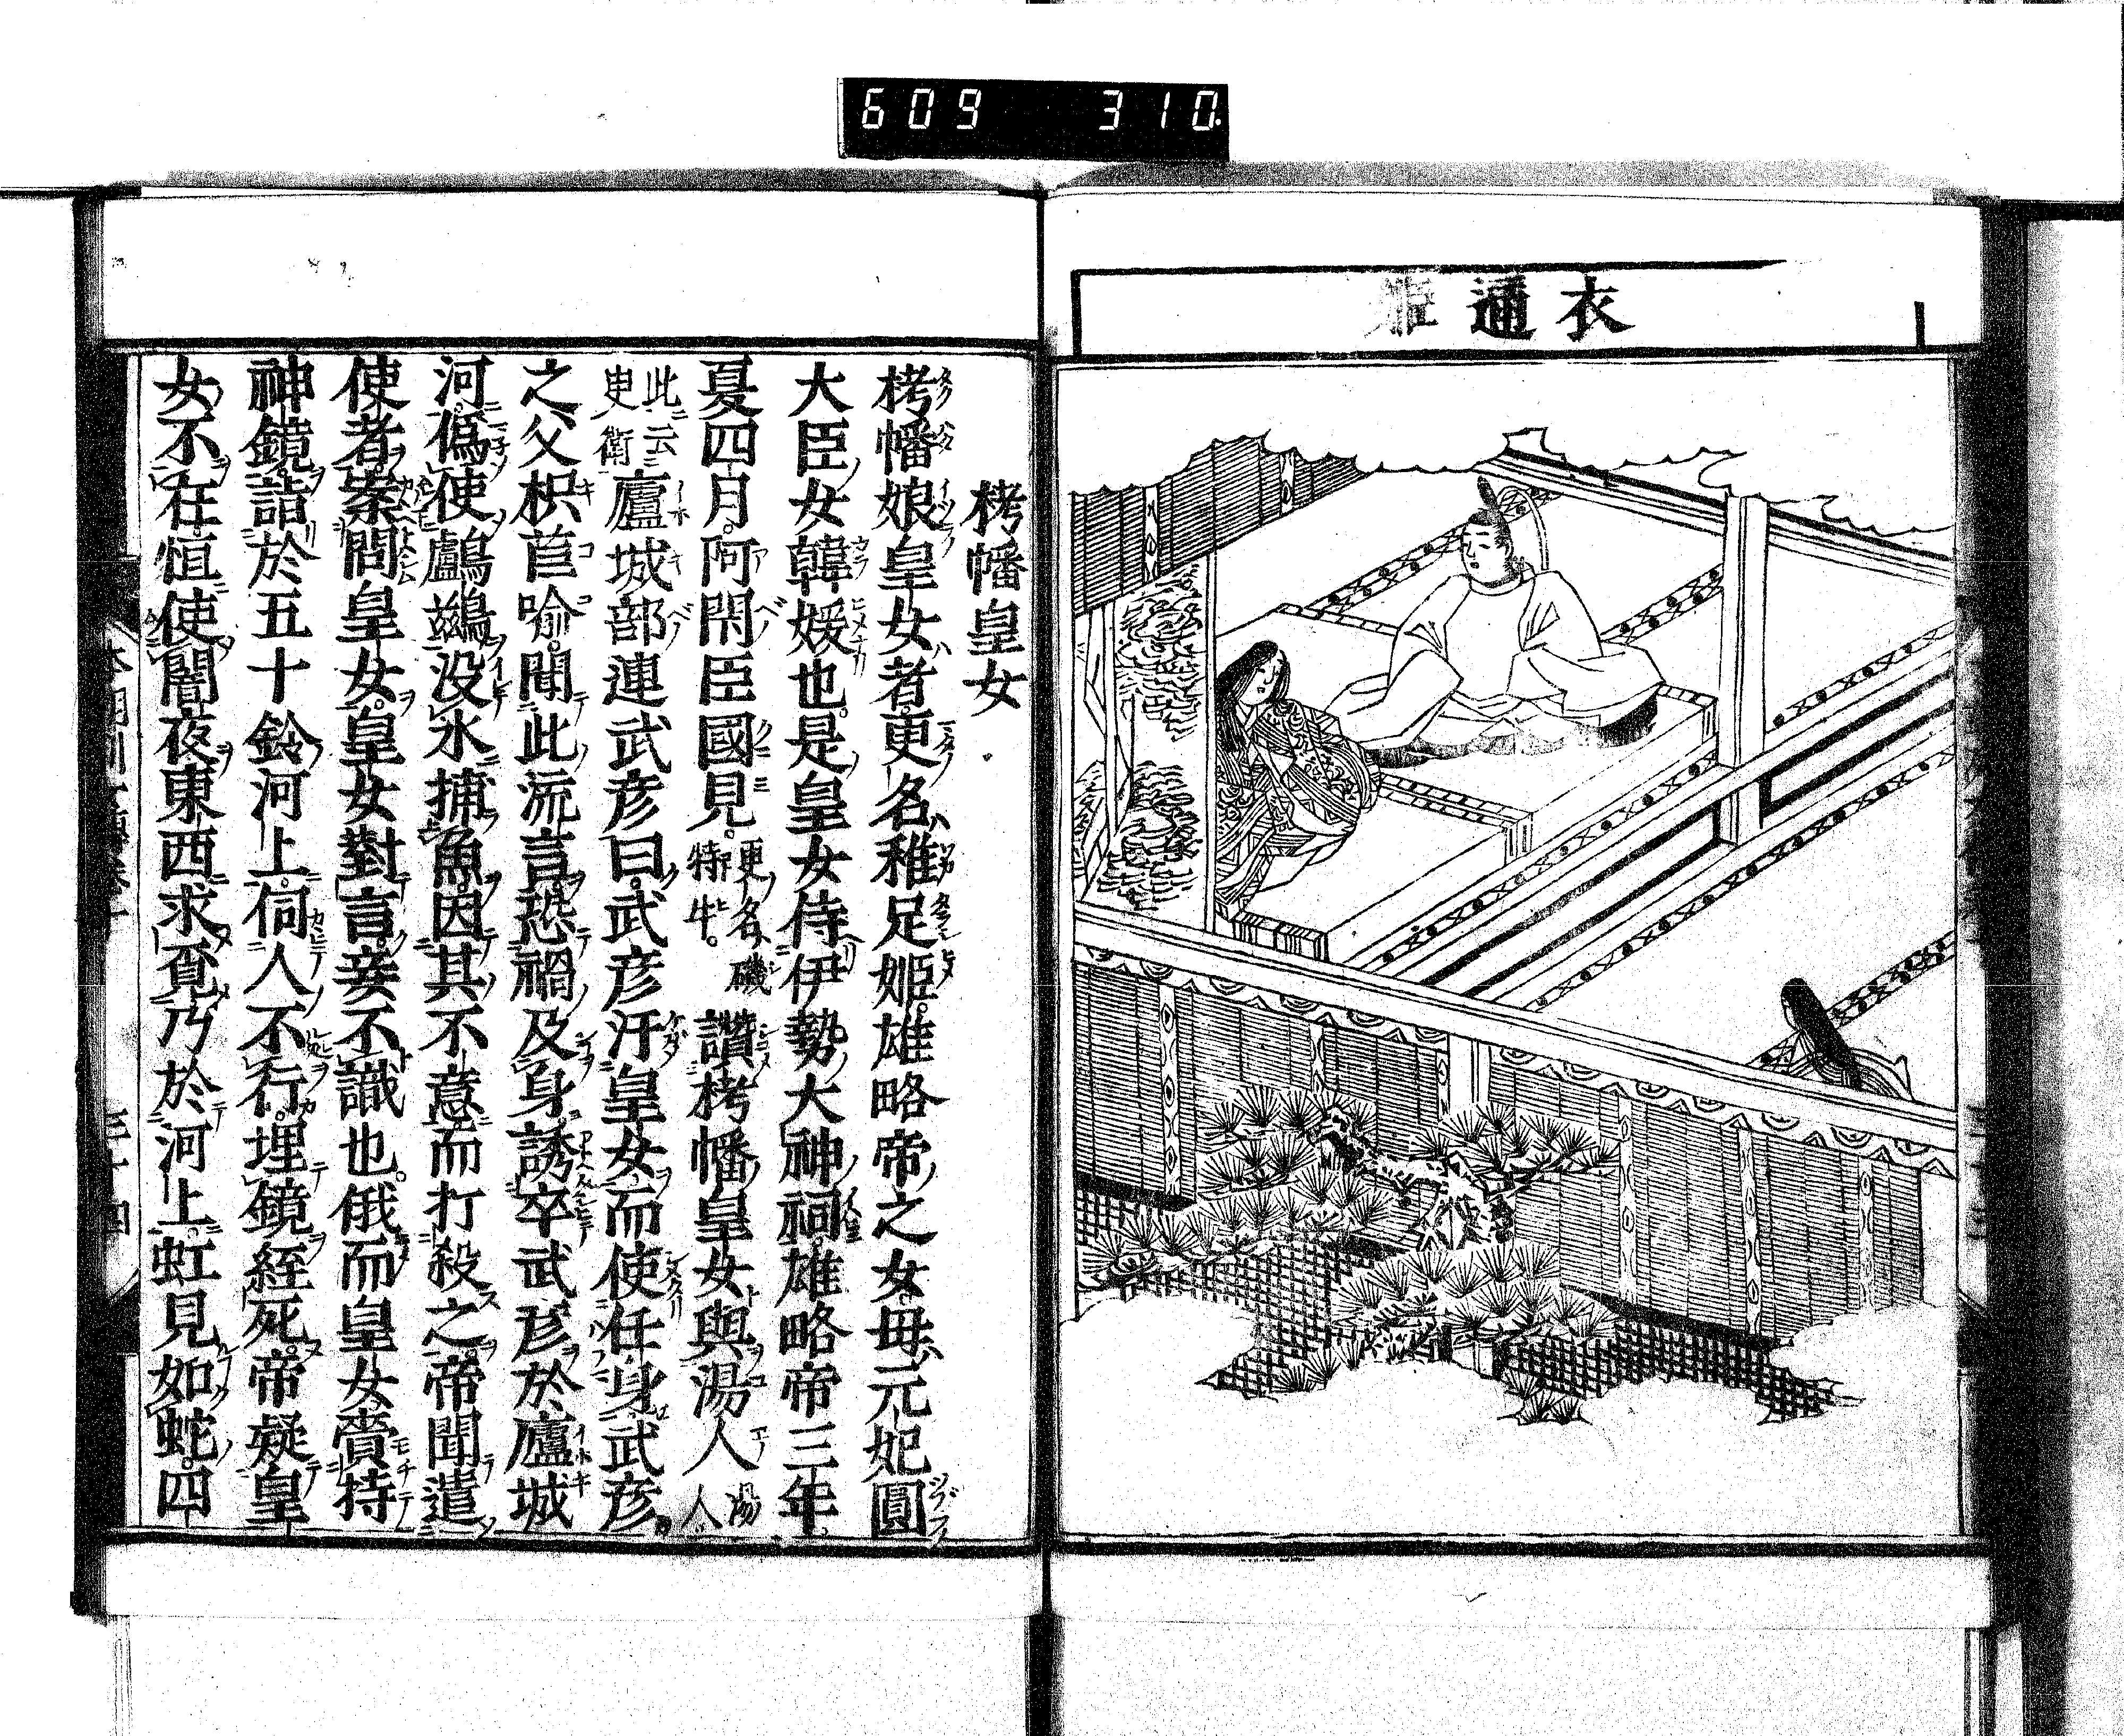 609 310
衣通姫
栲幡皇女
栲幡娘皇女者更名稚足姫雄略帝之女母元妃圓
大臣女韓媛也是皇女侍伊勢大神祠雄略帝三年
夏四月阿閇臣國見更名磯特牛讃栲幡皇女與湯人湯人
此云臾衛廬城部連武彦曰武彦汗皇女而使任身武彦
之父枳莒喩聞此流言恐禍及身誘卒武彦於廬城
河僞使鸕鷀没水捕魚因其不意而打殺之帝聞遣
使者案問皇女皇女對言妾不識也俄而皇女賷持
神鏡詣於五十鈴河上伺人不行埋鏡經死帝疑皇
女不在恒使闇夜東西求覔乃於河上虹見如蛇四